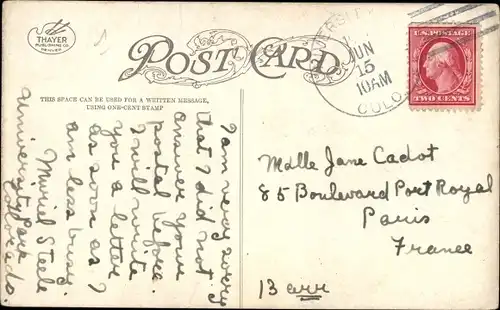 THAYER
PUBLISHING CO.
DENVER
POST CARD
THIS SPACE CAN BE USED FOR A WRITTEN MESSAGE,
USING ONE-CENT STAMP
JUN
15
10AM
COLO.
U.S. POSTAGE
TWO CENTS
I am very sorry
that I did not
answer your
postal before.
I will write
you a letter
as soon as I
am less busy.
Muriel Steele
University Park
Colorado
Mdlle Jane Cadot
85 Boulevard Port Royal
Paris
France
13 arr